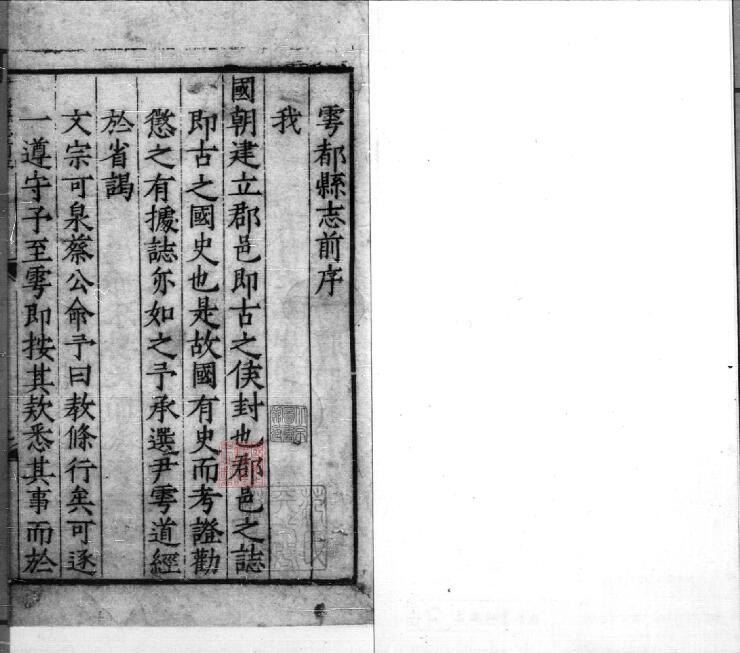 雩都縣志前序
我
國朝建立郡邑即古之侯封也郡邑之誌
即古之國史也是故國有史而考證勸
懲之有據誌亦如之予承選尹雩道經
於省謁
文宗可泉蔡公命予曰教條行矣可逐
一遵守予至雩即按其欵悉其事而於